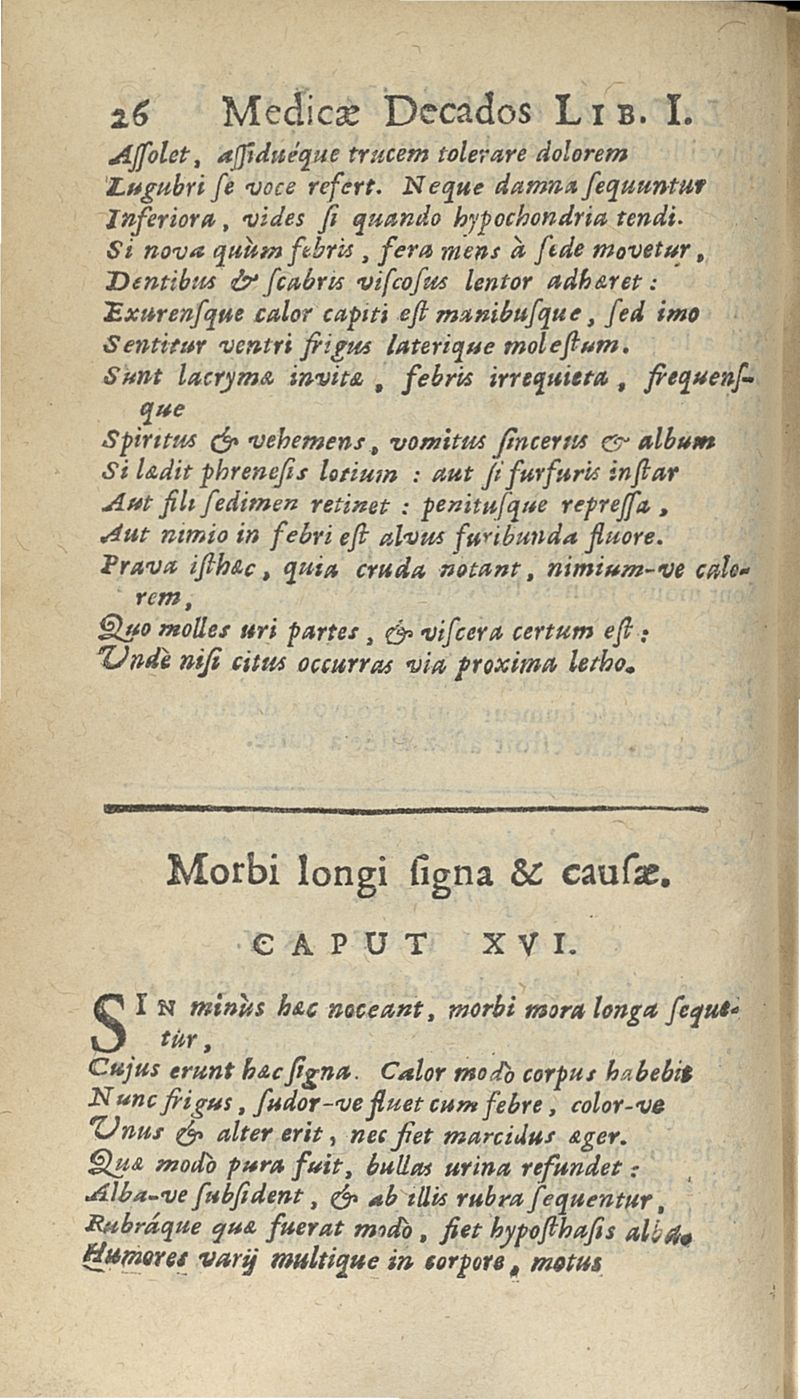 26 Medicæ Decados LIB. I.
Aſſolet, aſſiduéque trucem tolerare dolorem
Lugubri ſe voce refert. Neque damna ſequuntur
Inferiora, vides ſi quando hypochondria tendi.
Si nova quùm febris, fera mens à ſede movetur,
Dentibus & ſcabris viſcoſus lentor adhæret:
Exurenſque calor capiti eſt manibuſque, ſed imo
Sentitur ventri frigus laterique moleſtum.
Sunt lacrymæ invitæ, febris irrequieta, frequenſ-
que
Spiritus & vehemens, vomitus ſincerus & album
Si lædit phreneſis lotium: aut ſi furfuris inſtar
Aut fili ſedimen retinet: penituſque repreſſa,
Aut nimio in febri eſt alvus furibunda fluore.
Prava iſthæc, quia cruda notant, nimium-ve calo-
rem,
Quo molles uri partes, & viſcera certum eſt:
Undè niſi citus occurras via proxima letho.
Morbi longi ſigna & cauſæ.
CAPUT XVI.
SIN minùs hæc noceant, morbi mora longa ſeque-
tur,
Cujus erunt hæc ſigna. Calor modò corpus habebit
Nunc frigus, ſudor-ve fluet cum febre, color-ve
Unus & alter erit, nec fiet marcidus æger.
Quæ modò pura fuit, bullas urina refundet:
Alba-ve ſubſident, & ab illis rubra ſequentur,
Rubráque quæ fuerat modò, fiet hypoſthaſis alba.
Humores varij multique in corpore, motus